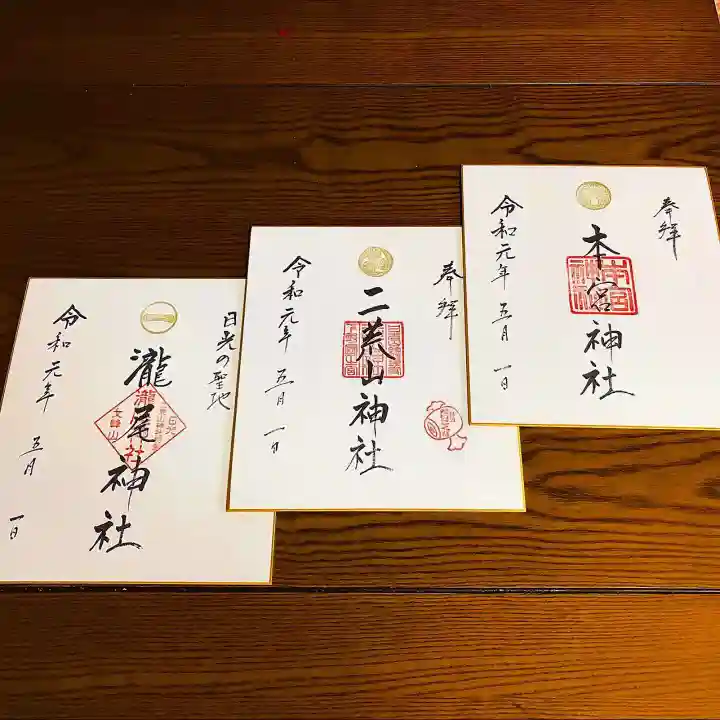 奉拝
本宮神社
令和元年 五月 一日
奉拝
二荒山神社
令和元年 五月 一日
日光の聖地
瀧尾神社
令和元年 五月 一日
本宮神社